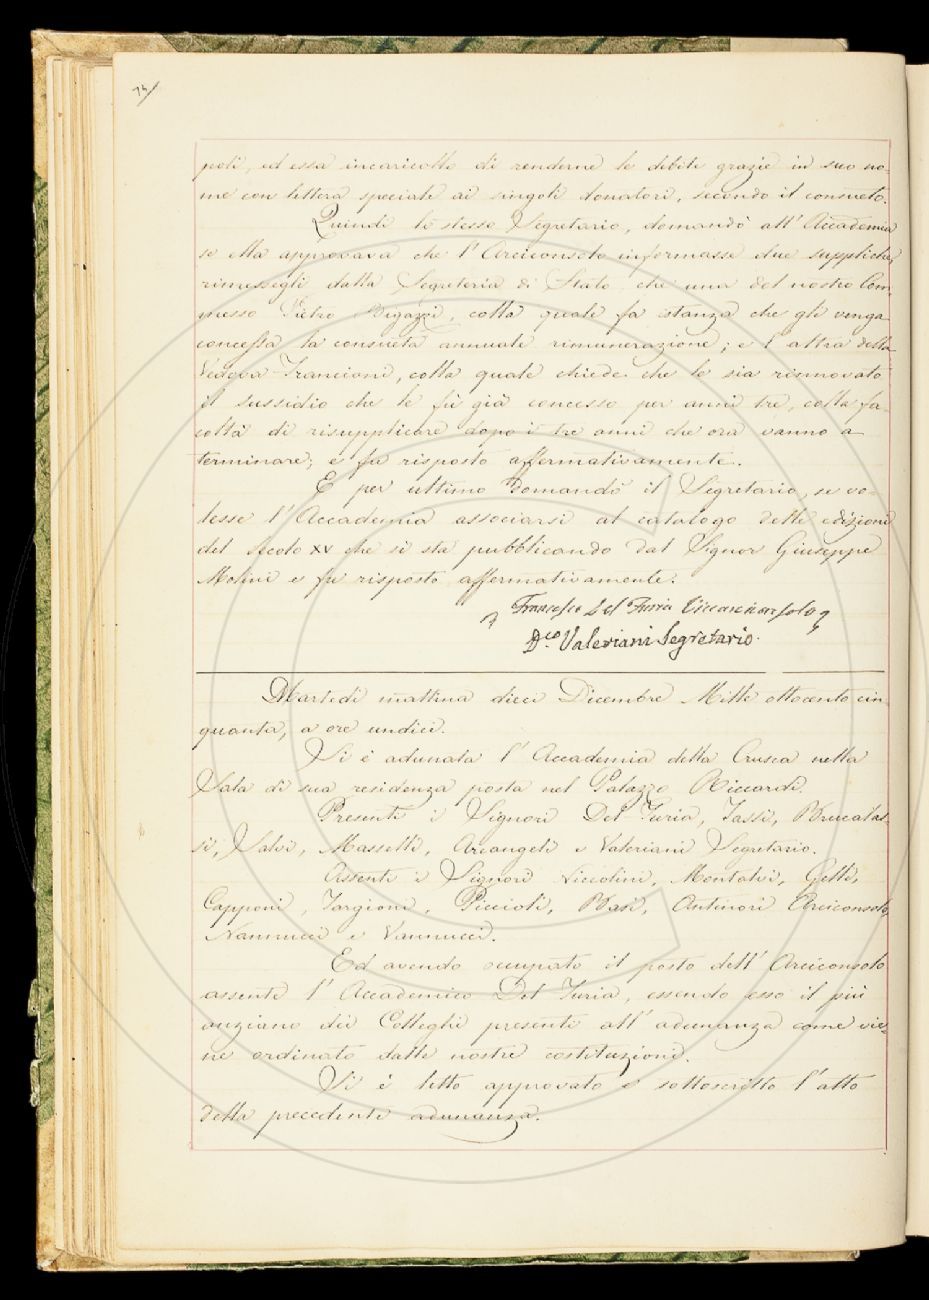 74
poli, ed essa incaricollo di renderne le debite grazie in suo no-
me con lettera speciale ai singoli donatori, secondo il consueto.
Quindi lo stesso Segretario, domandò all'Accademia
se ella approvava che l'Arciconsolo informasse due suppliche
rimessegli dalla Segreteria di Stato che una del nostro Com-
messo Pietro Bigazzi, colla quale fa istanza che gli venga
concessa la consueta annuale rimunerazione; e l'altra della
Vedova Francioni, colla quale chiede che le sia rinnovato
il sussidio che le fù già concesso per anni tre, colla fa-
coltà di risupplicare dopo i tre anni che ora vanno a
terminare; e fu risposto affermativamente.
E per ultimo domandò il Segretario, se vo-
lesse l'Accademia associarsi al catalogo delle edizioni
del secolo XV che si sta pubblicando dal Signor Giuseppe
Molini e fu risposto affermativamente.
Francesco Del Furia Vicearciconsolo
D.co Valeriani Segretario.
Martedì mattina dieci Dicembre Mille ottocento cin-
quanta, a ore undici.
Si è adunata l'Accademia della Crusca nella
Sala di sua residenza posta nel Palazzo Riccardi.
Presenti i Signori Del Furia, Tassi, Brucalas-
si, Salvi, Masselli, Arcangeli e Valeriani Segretario.
Assenti i Signori Niccolini, Montalvi, Gelli,
Capponi, Targioni, Piccioli, Basi, Antinori Arciconsolo,
Nannucci e Vannucci.
Ed avendo occupato il posto dell'Arciconsolo
assente l'Accademico Del Furia, essendo esso il più
anziano dei Colleghi presenti all'adunanza come vie-
ne ordinato dalle nostre costituzioni.
Si è letto approvato e sottoscritto l'atto
della precedente adunanza.